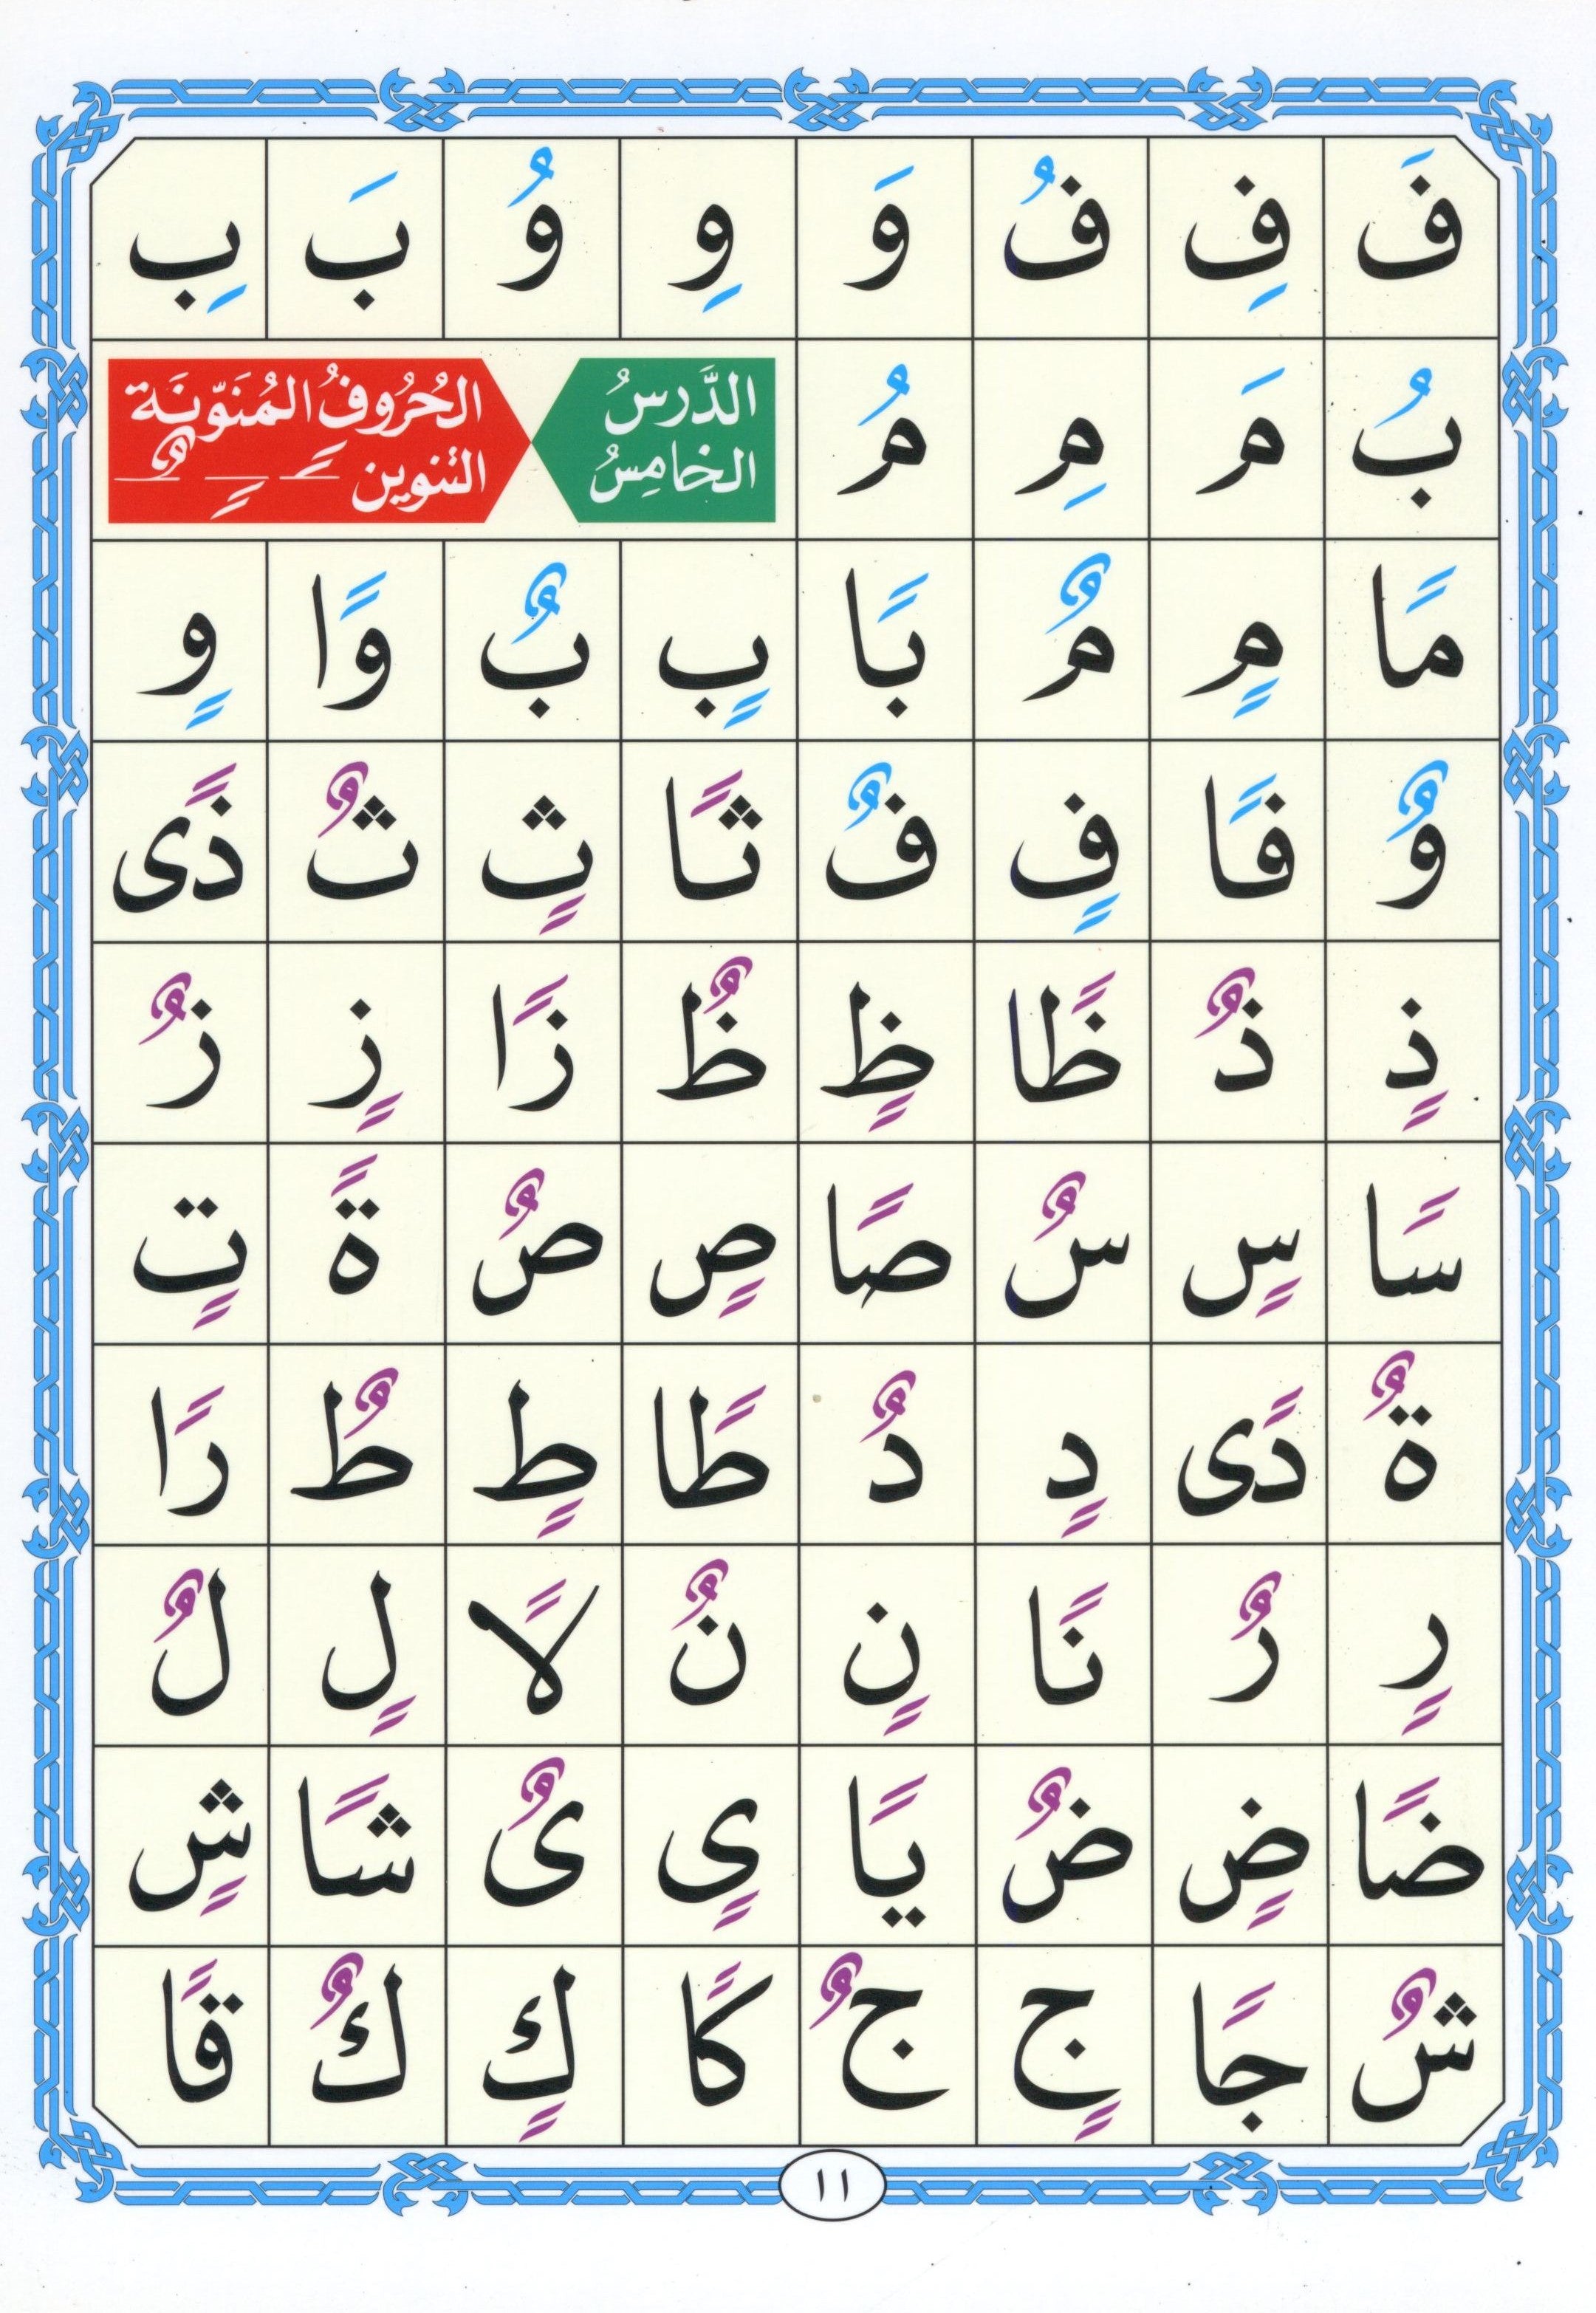 فَ فِ فُ وَ وِ وُ بَ بِ
بُ مَ مِ مُ
الدَّرسُ الخامِسُ
الحُرُوفُ المُنَوّنَة
التنوين ـً ـٍ ـٌ
مًا مٍ مٌ بًا بٍ بٌ وًا وٍ
وٌ فًا فٍ فٌ ثًا ثٍ ثٌ ذًى
ذٍ ذٌ ظًا ظٍ ظٌ زًا زٍ زٌ
سًا سٍ سٌ صًا صٍ صٌ ةً تٍ
ةٌ دًى دٍ دٌ طًا طٍ طٌ رًا
رٍ رٌ نًا نٍ نٌ لًا لٍ لٌ
ضًا ضٍ ضٌ يًا ىٍ ىٌ شًا شٍ
شٌ جًا جٍ جٌ كًا كٍ كٌ قًا
١١